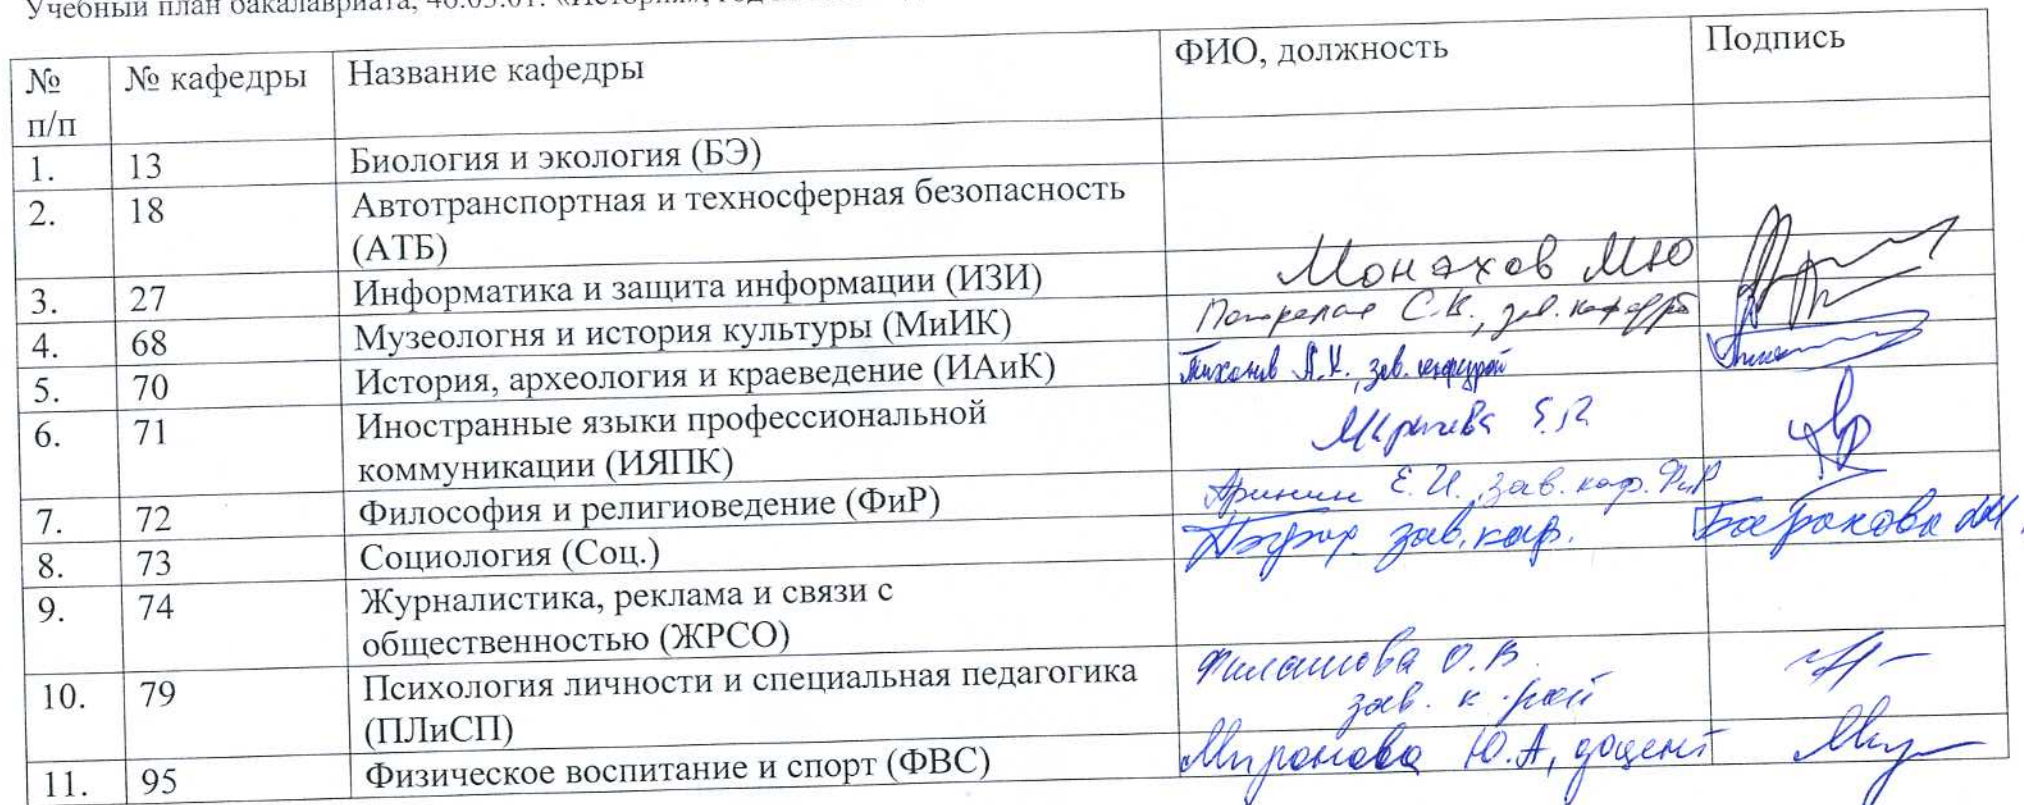 Учебный план бакалавриата, 46.03.01. «История»,
№ п/п № кафедры Название кафедры ФИО, должность Подпись
1. 13 Биология и экология (БЭ)
2. 18 Автотранспортная и техносферная безопасность
(АТБ)
3. 27 Информатика и защита информации (ИЗИ) Монахов МЮ
4. 68 Музеологня и история культуры (МиИК) С.В., зав. кафедрой
5. 70 История, археология и краеведение (ИАиК) Тихонов А.К., зав. кафедрой
6. 71 Иностранные языки профессиональной
коммуникации (ИЯПК)
7. 72 Философия и религиоведение (ФиР) Аринин Е.И., зав. каф. ФиР
8. 73 Социология (Соц.) зав. каф.
9. 74 Журналистика, реклама и связи с
общественностью (ЖРСО)
10. 79 Психология личности и специальная педагогика Филатова О.В.
(ПЛиСП) зав. к-рой
11. 95 Физическое воспитание и спорт (ФВС) Миронова Ю.А, доцент